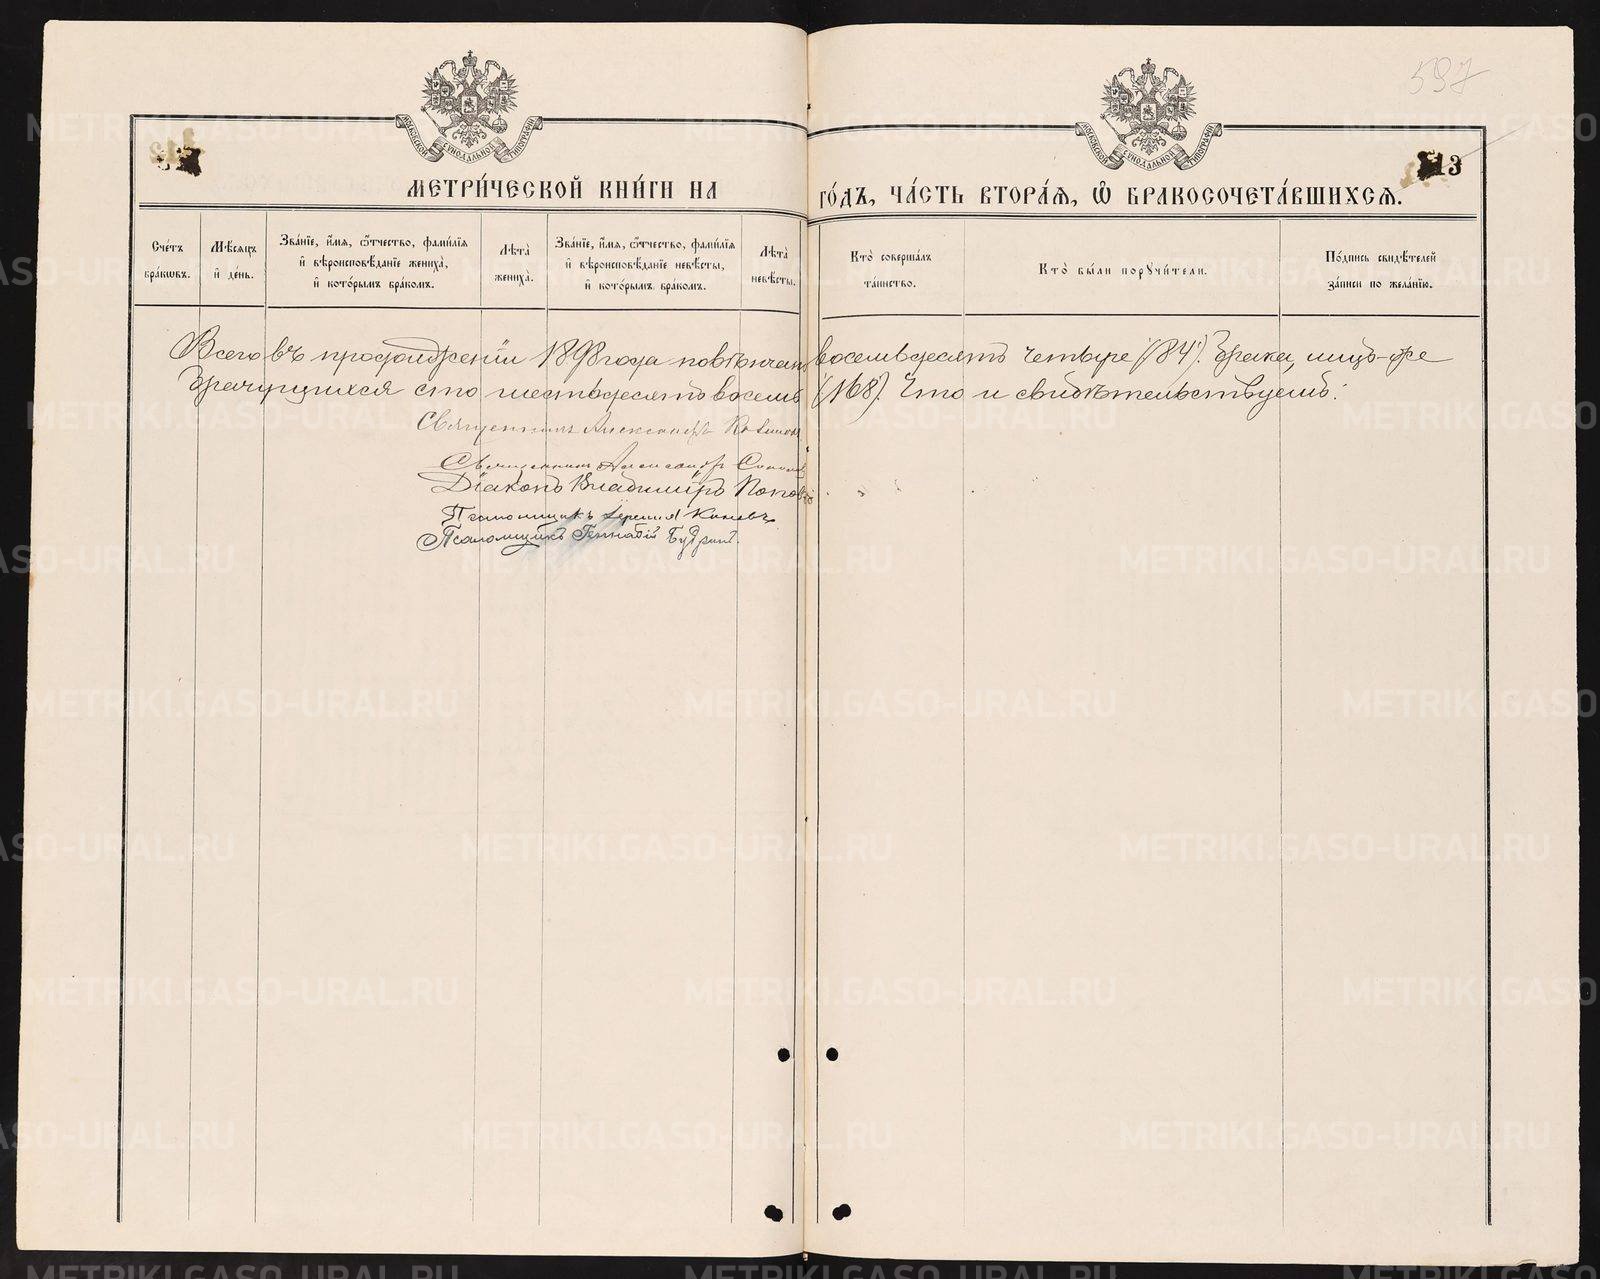 597
13
МОСКОВСКОЙ СѴНОДАЛЬНОЙ ТИПОГРАФИИ
МОСКОВСКОЙ СѴНОДАЛЬНОЙ ТИПОГРАФИИ
МЕТРИ́ЧЕСКОЙ КНИ́ГИ НА ГО́ДЪ, ЧА́СТЬ ВТОРА́Я, Ѽ БРАКОСОЧЕТА́ВШИХСЯ.
Сче́тъ бра́ковъ.
Мѣ́сяцъ и҆ де́нь.
Зва́нїе, и҆́мя, ѻ҆́тчество, фами́лїя и҆ вѣроисповѣ́данїе жениха̀, и҆ кото́рымъ бра́комъ.
Лѣта̀ жениха̀.
Зва́нїе, и҆́мя, ѻ҆́тчество, фами́лїя и҆ вѣроисповѣ́данїе невѣ́сты, и҆ кото́рымъ бра́комъ.
Лѣта̀ невѣ́сты.
Кто̀ соверша́лъ та́инство.
Кто̀ бы́ли порꙋчи́тели.
По́дпись свидѣ́телей за́писи по жела́нїю.
Всего въ продолженіи 1898 года повѣнчано восемьдесятъ четыре (84) брака, лицъ-же
брачущихся сто шестьдесятъ восемь (168). Что и свидѣтельствуемъ:
Священникъ Александръ
Священникъ Александръ
Діаконъ Владиміръ Поповъ
Псаломщикъ
Псаломщикъ Геннадій
METRIKI.GASO-URAL.RU